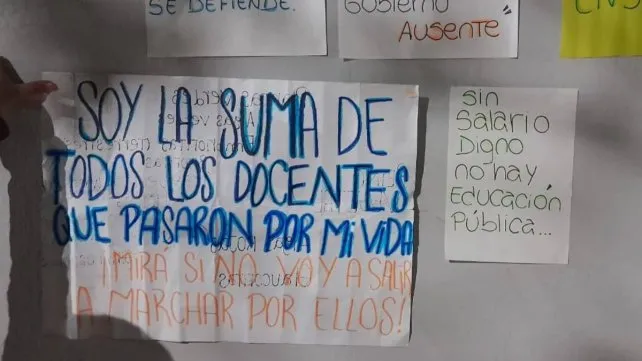 SE DEFIENDE.
Gobierno
AUSENTE
SOY LA SUMA DE
TODOS LOS DOCENTES
QUE PASARON POR Mi ViDA
¡MIRA SI NO VOY A SALIR
A MARCHAR POR ELLOS!
Sin
Salario
Digno
no hay
Educación
Pública...